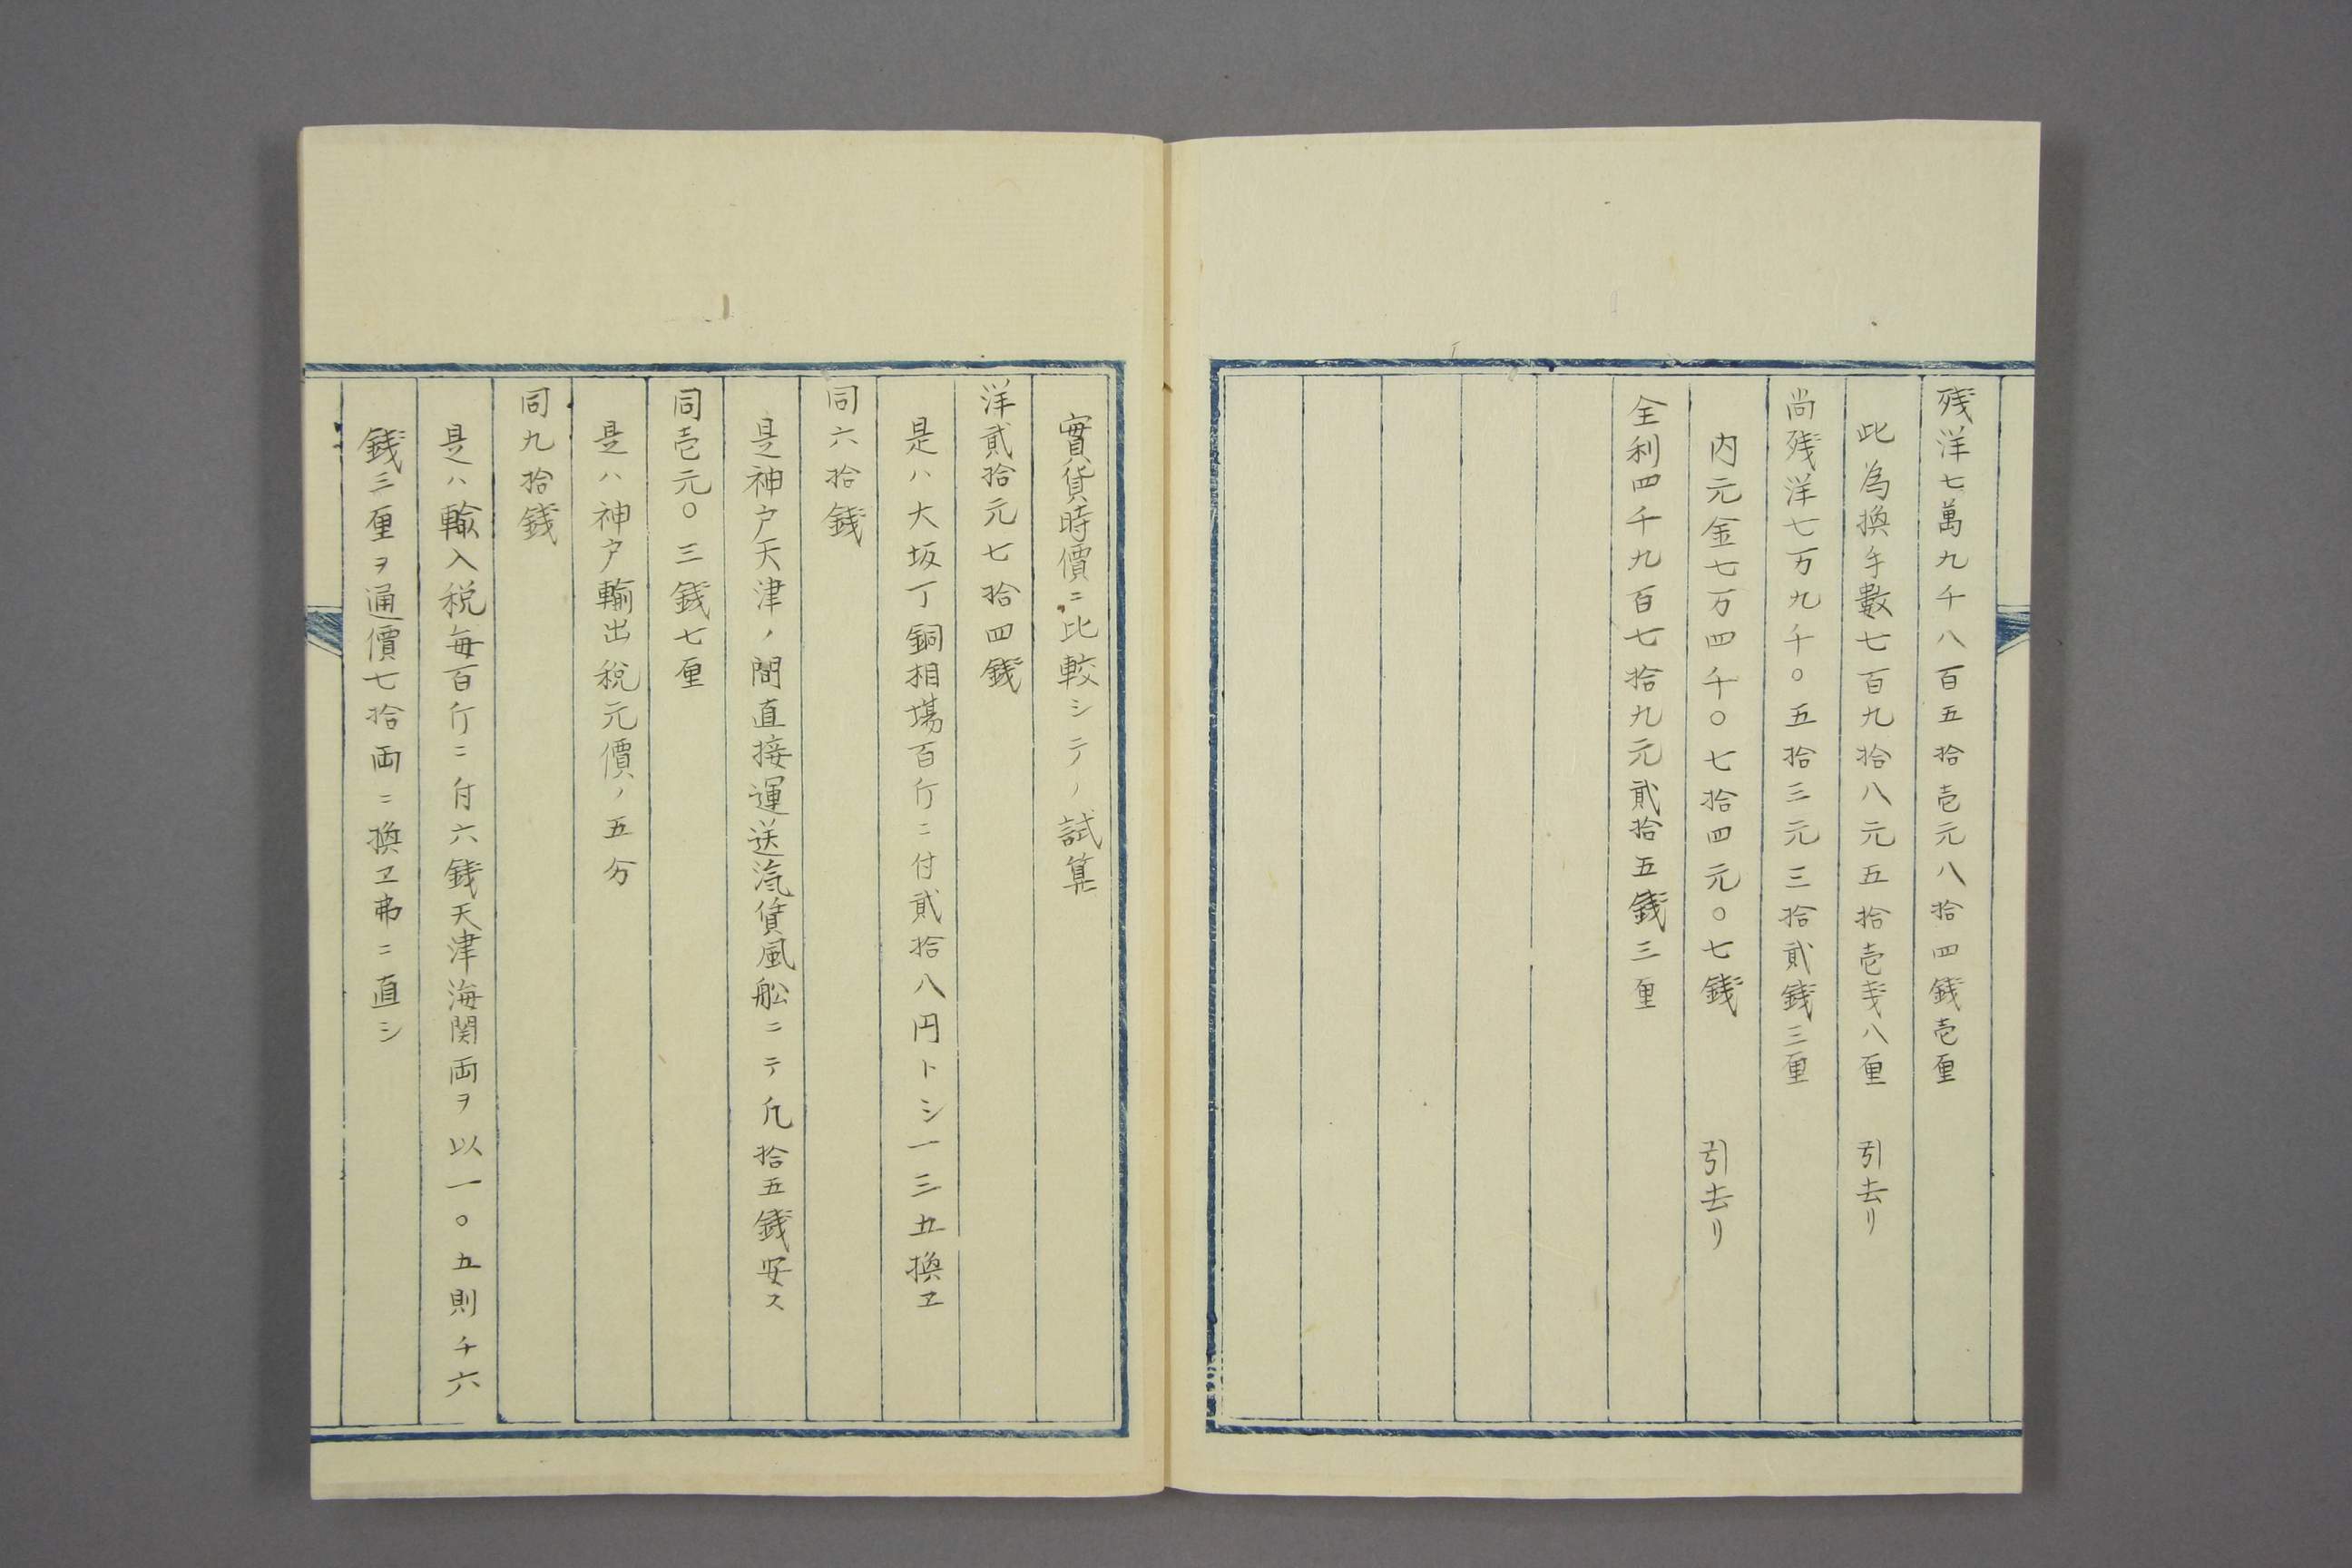 残洋七萬九千八百五拾壱元八拾四錢壱厘
此為換手數七百九拾八元五拾壱戔八厘 引去リ
尚残洋七万九千〇五拾三元三拾貳錢三厘
内元金七万四千〇七拾四元〇七錢 引去リ
全利四千九百七拾九元貳拾五錢三厘
實貨時價ニ比較シテノ試算
洋貳拾元七拾四錢
是ハ大坂丁銅相場百斤ニ付貳拾八円トシ一三五換ヱ
同六拾錢
是神戸天津ノ間直接運送汽賃風舩ニテ凢拾五錢安ス
同壱元〇三錢七厘
是ハ神戸輸出税元價ノ五分
同九拾錢
是ハ輸入税毎百斤ニ付六錢天津海関両ヲ以一〇五則チ六
錢三厘ヲ通價七拾両ニ換ヱ弗ニ直シ